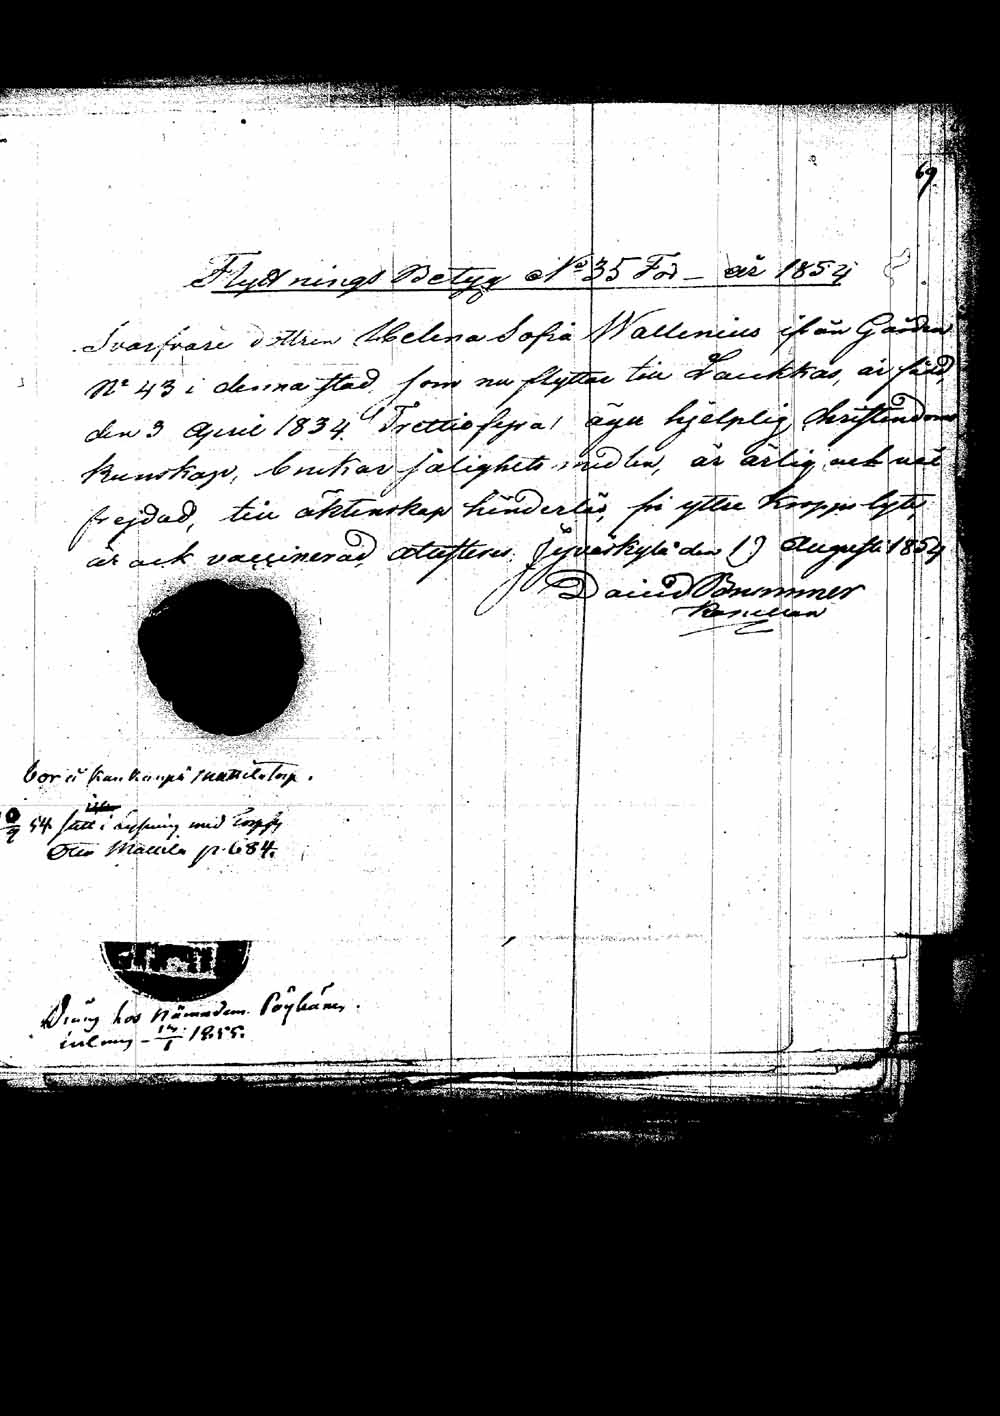 69.
Flyttnings Betyg No 35 För år 1854
Svarfvare dottren Helena Sofia Wallenius ifrån Gården
No 43 i denna stad, som nu flyttar till Laukkas, är född
den 3 April 1834 Trettiofyra, äger hjelplig Christendoms
kunskap, brukar salighets medlen, är ärlig och väl
frejdad, till äktenskap hinderlös, fri yttre kropps lyte,
är ock vaccinerad, attesteras. Jyväskylä den 19 Augusti 1854
David Brummer
bor å Kankanpä Mattila torp.
54 satt i lysning med
Otto Mattila p. 684.
Dräng hos Nämndem. Pöyhänen.
1855.